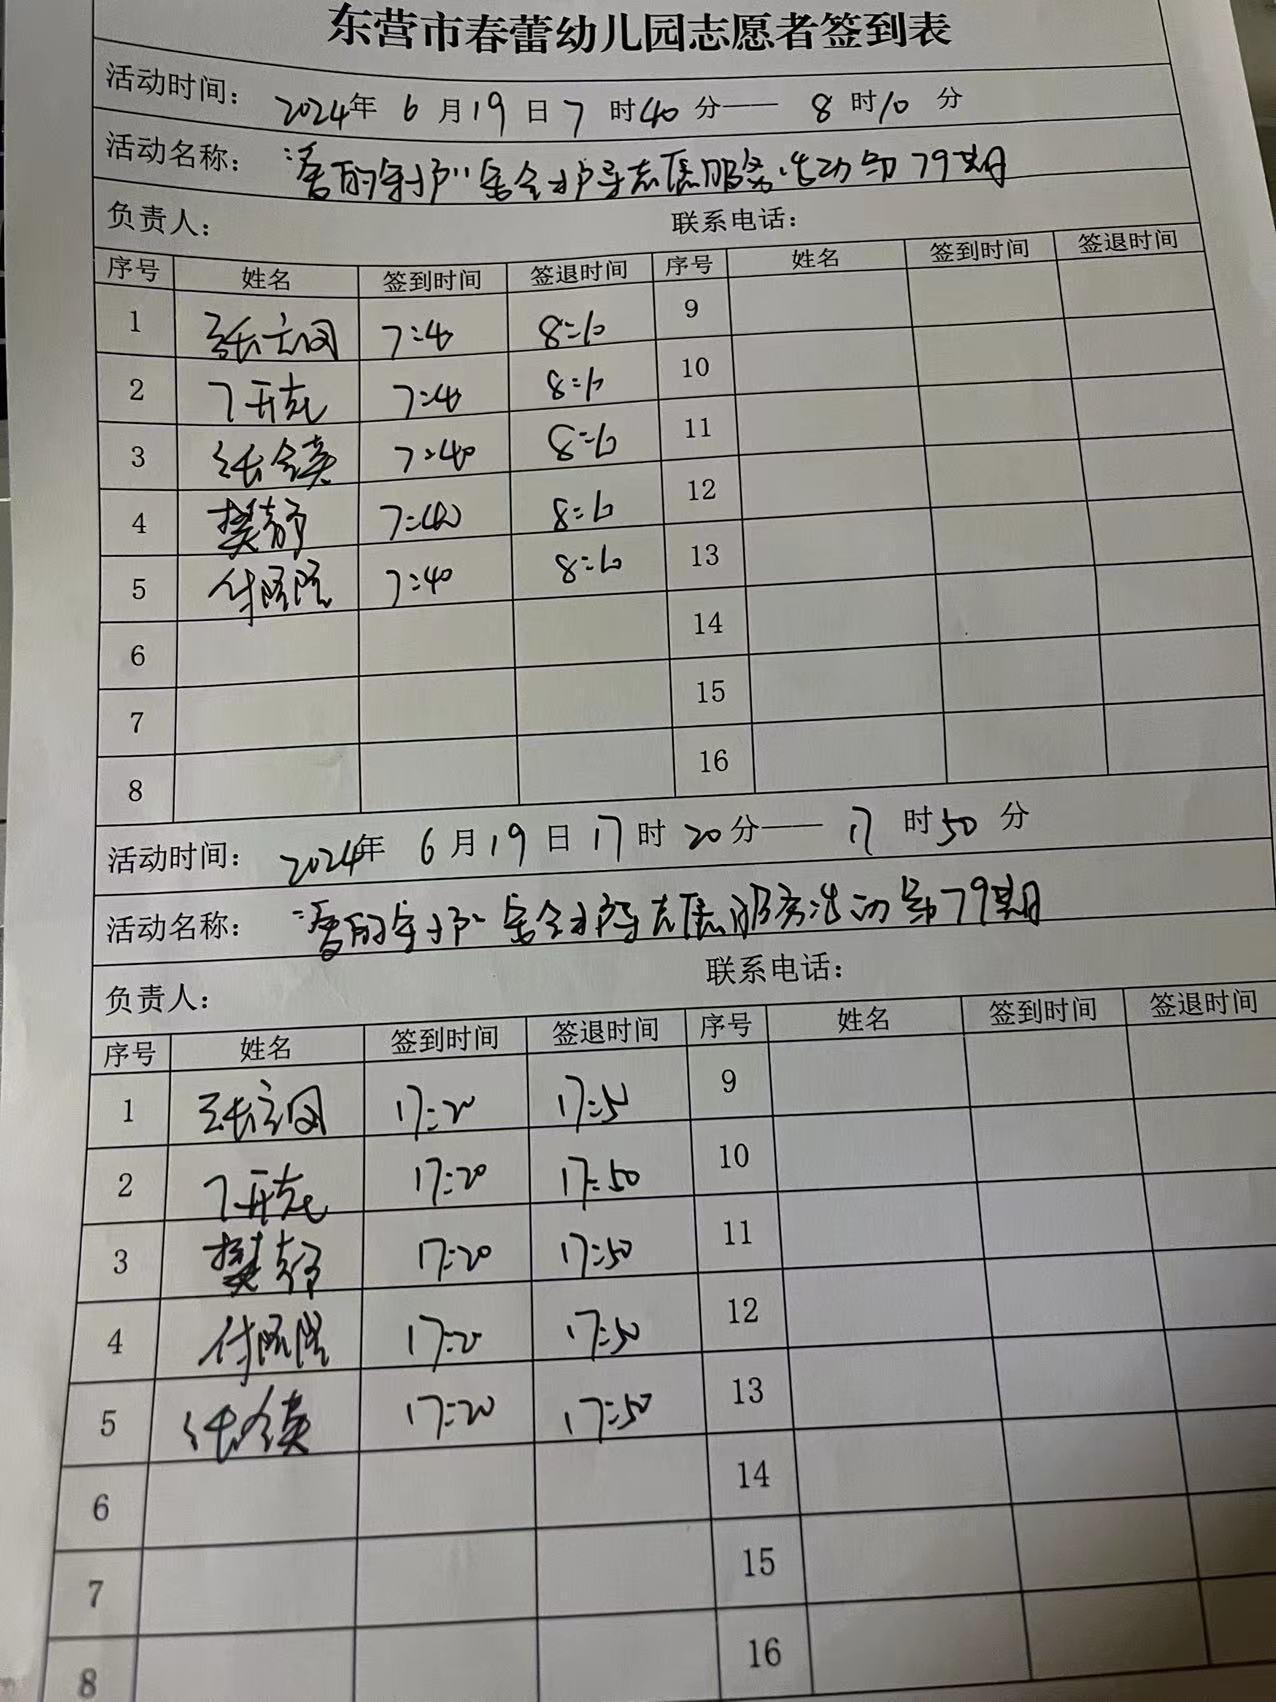 东营市春蕾幼儿园志愿者签到表
活动时间： 2024年 6 月 19 日 7 时 40 分—— 8 时 10 分
活动名称： 守护 安全护导志愿服务活动第79期
负责人： 联系电话：
序号 姓名 签到时间 签退时间 序号 姓名 签到时间 签退时间
1 7:40 8:10 9
2 7:40 8:10 10
3 7:40 8:10 11
4 樊静 7:40 8:10 12
5 付 7:40 8:10 13
6 14
7 15
8 16
活动时间： 2024年 6 月 19 日 17 时 20 分—— 17 时 50 分
活动名称： 守护 安全护导志愿服务活动第79期
负责人： 联系电话：
序号 姓名 签到时间 签退时间 序号 姓名 签到时间 签退时间
1 17:20 17:50 9
2 17:20 17:50 10
3 樊静 17:20 17:50 11
4 付 17:20 17:50 12
5 17:20 17:50 13
6 14
7 15
8 16